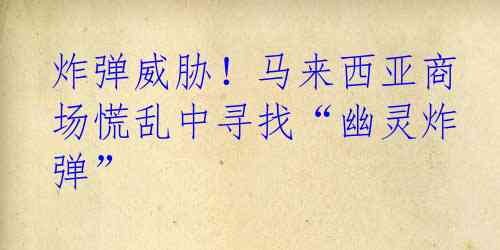 炸弹威胁！马来西亚商
场慌乱中寻找“幽灵炸
弹”